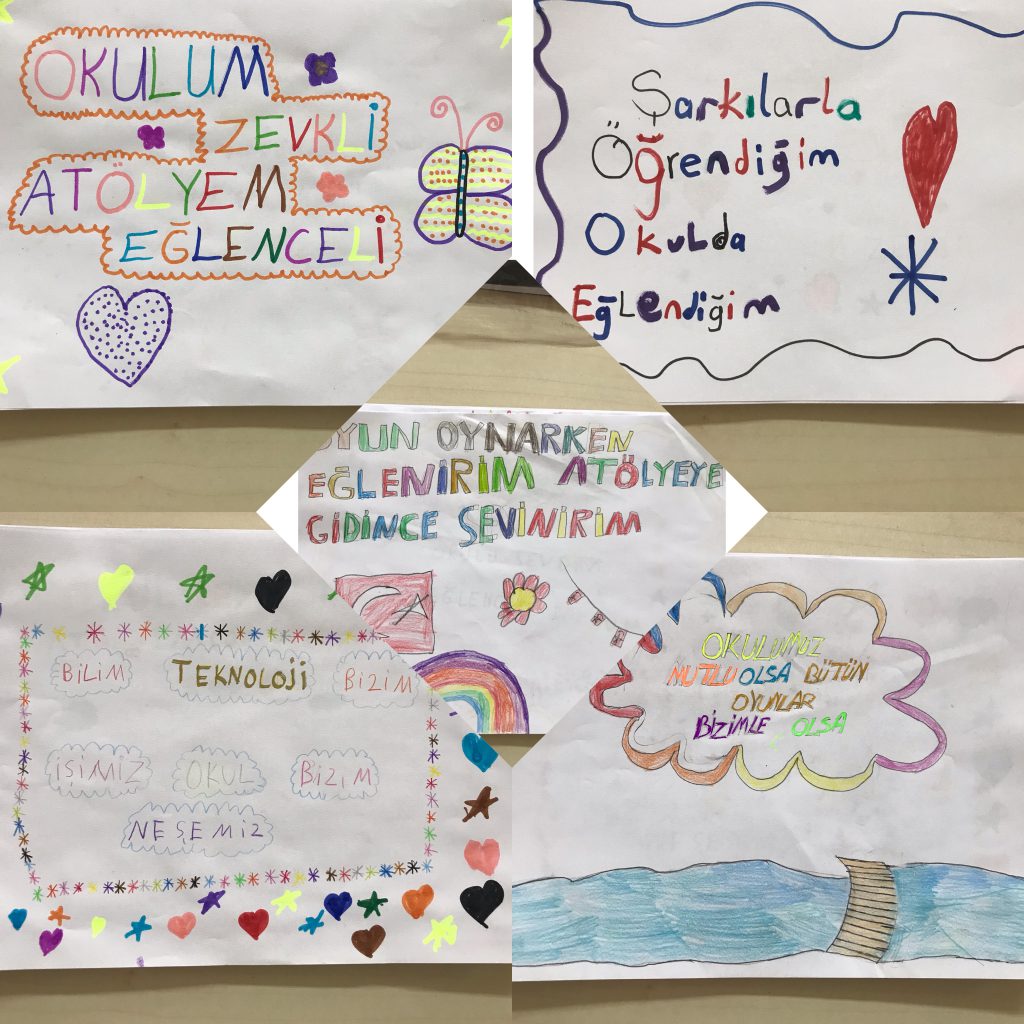 OKULUM
ZEVKLİ
ATÖLYEM
EĞLENCELİ
Şarkılarla
Öğrendiğim
Okulda
Eğlendiğim
OYUN OYNARKEN
EĞLENİRİM ATÖLYEYE
GİDİNCE SEVİNİRİM
BİLİM TEKNOLOJİ BİZİM
İŞİMİZ OKUL BİZİM
NEŞEMİZ
OKULUMUZ
MUTLU OLSA BÜTÜN
OYUNLAR
BİZİMLE OLSA